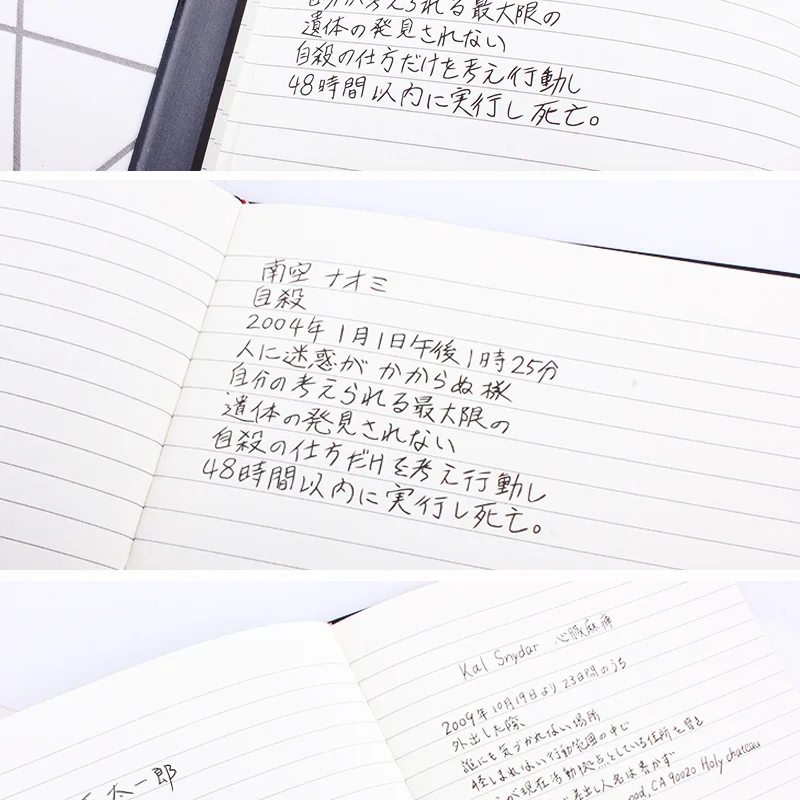 自分の考えられる最大限の
遺体の発見されない
自殺の仕方だけを考え行動し
48時間以内に実行し死亡。
南空 ナオミ
自殺
2004年 1月1日午後1時25分
人に迷惑が かからぬ様
自分の考えられる最大限の
遺体の発見されない
自殺の仕方だけを考え行動し
48時間以内に実行し死亡。
太一郎
Kal Snydar 心臓麻痺
2009年10月19日より 23日間のうち
外出した際、
誰にも気づかれない場所
怪しまれない行動範囲の中で
が現在活動拠点としている住所を
差出し人名は書かず
ood, CA 90020 Holy chateau